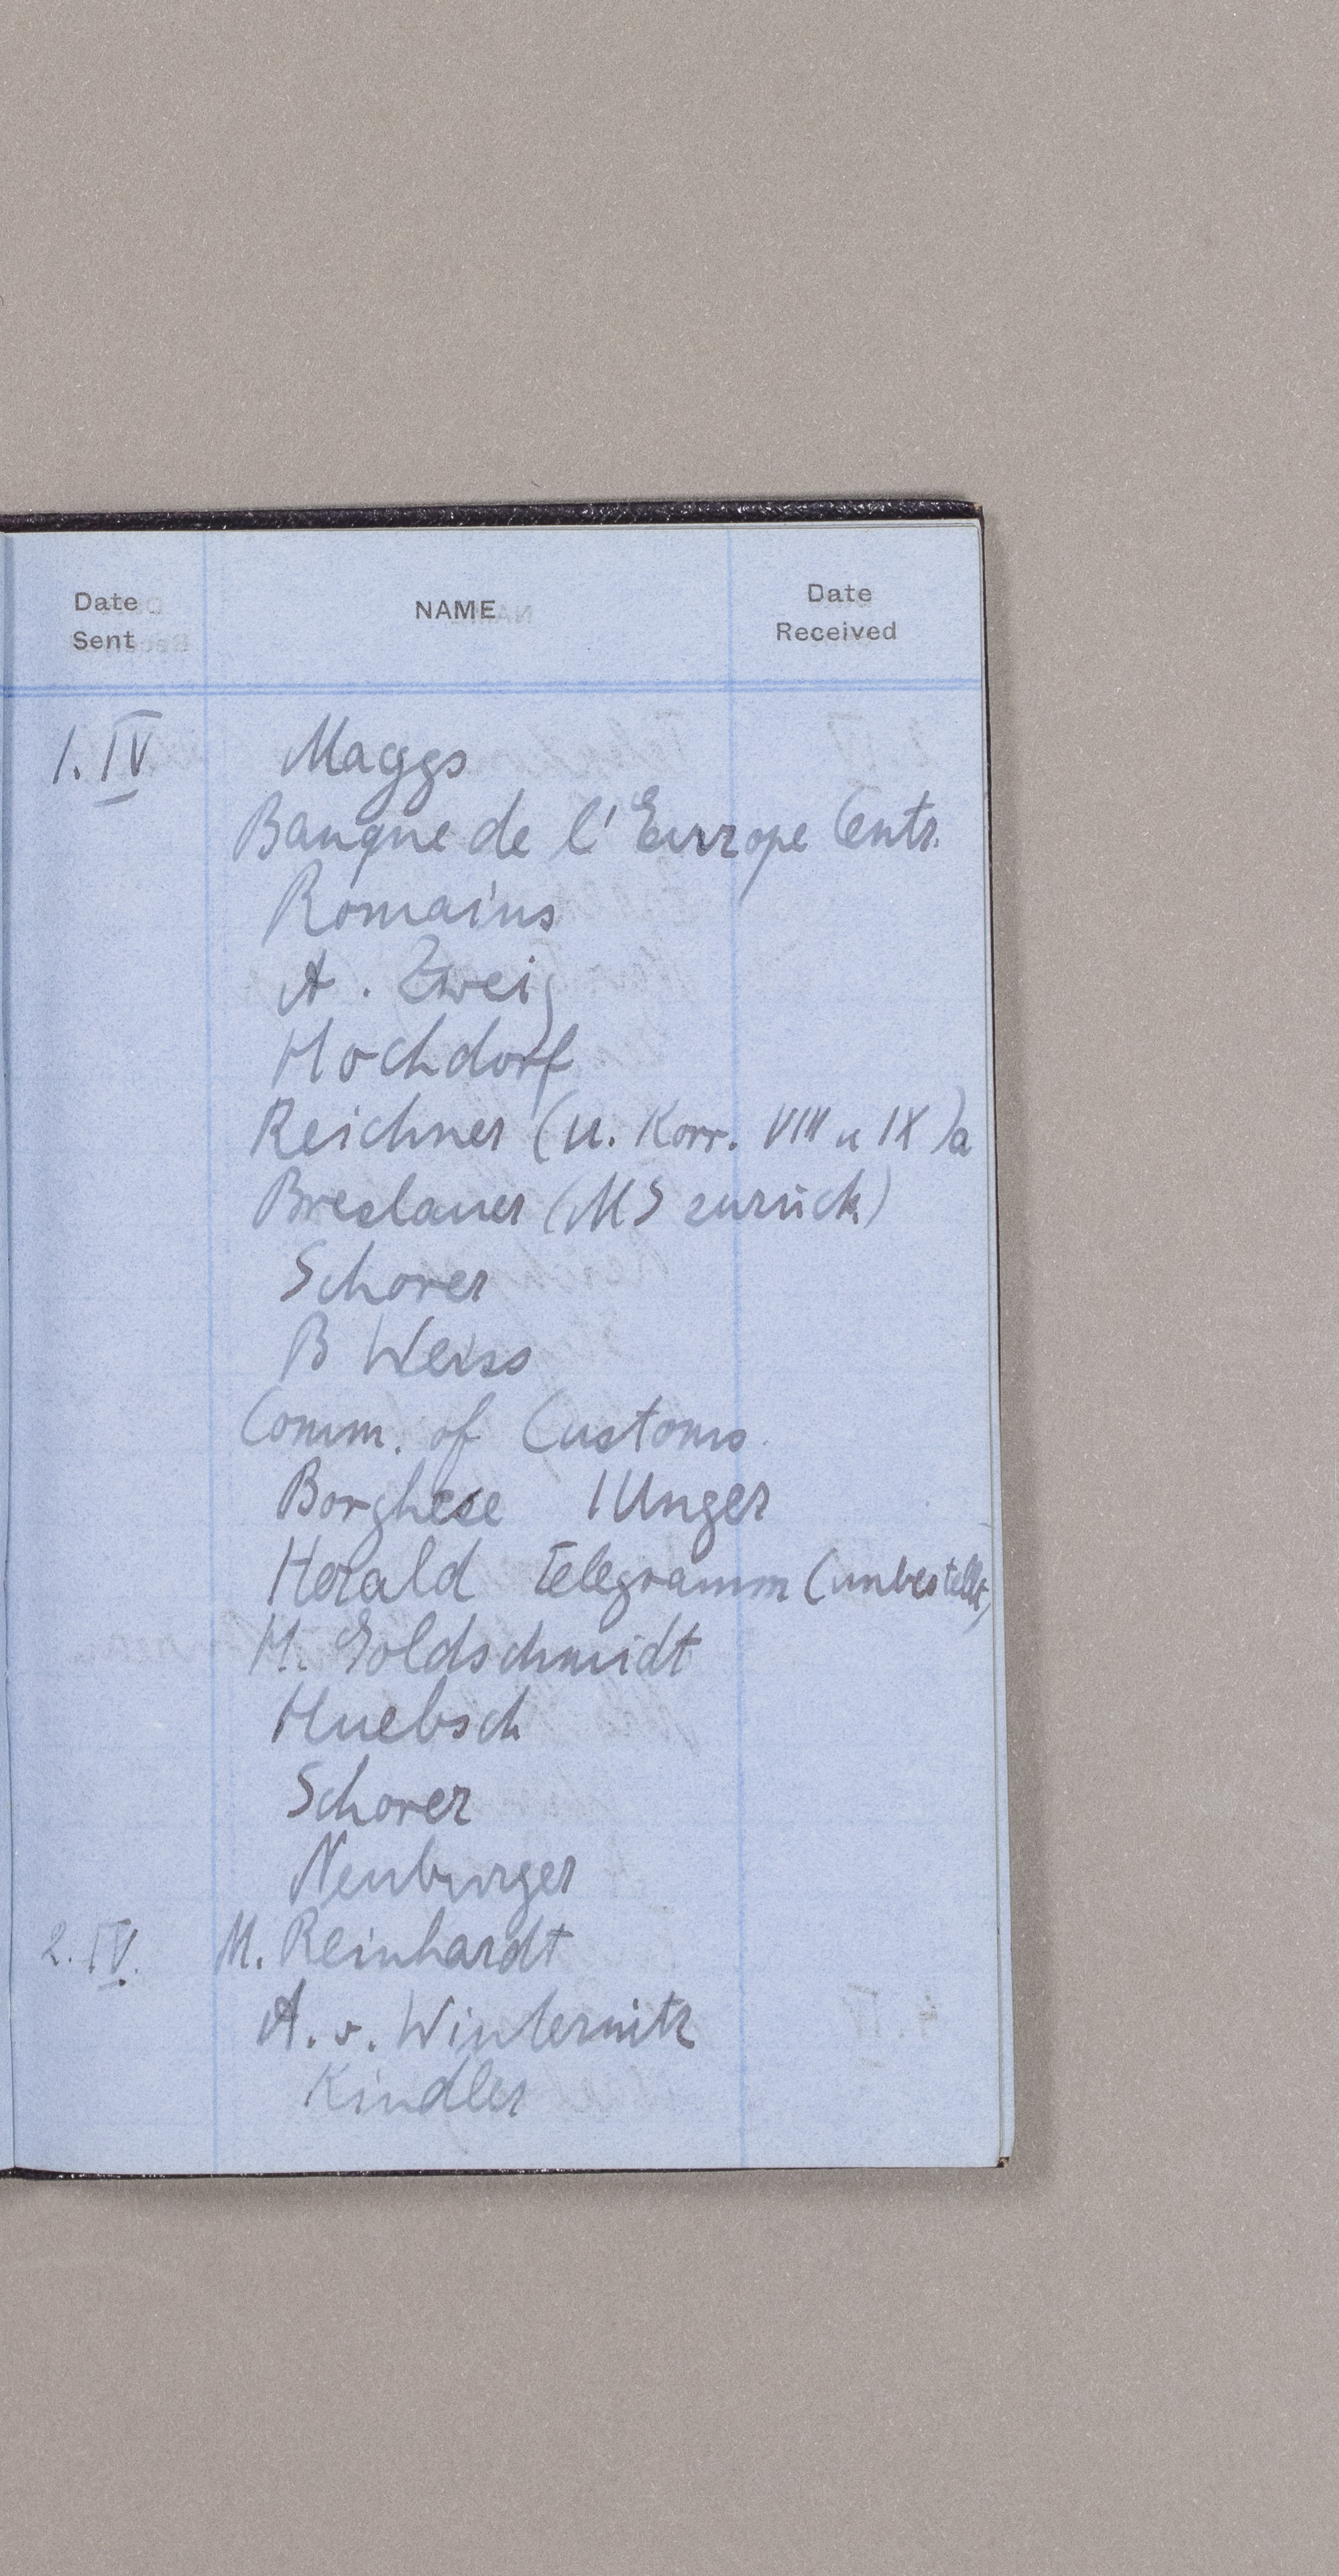 Date Sent NAME Date Received
1. IV Maggs
Banque de l'Europe Centr.
Romains
A. Zweig
Hochdorf
Reichner (u. Korr. VIII u IX)a
Breslauer (MS zurück)
Schorer
B Weiss
Comm. of Customs.
Borghese / Unger
Herald Telegramm (unbestellt)
H. Goldschmidt
Huebsch
Schorer
Neuburger
2. IV. M. Reinhardt
A. v. Winternitz
Kindler